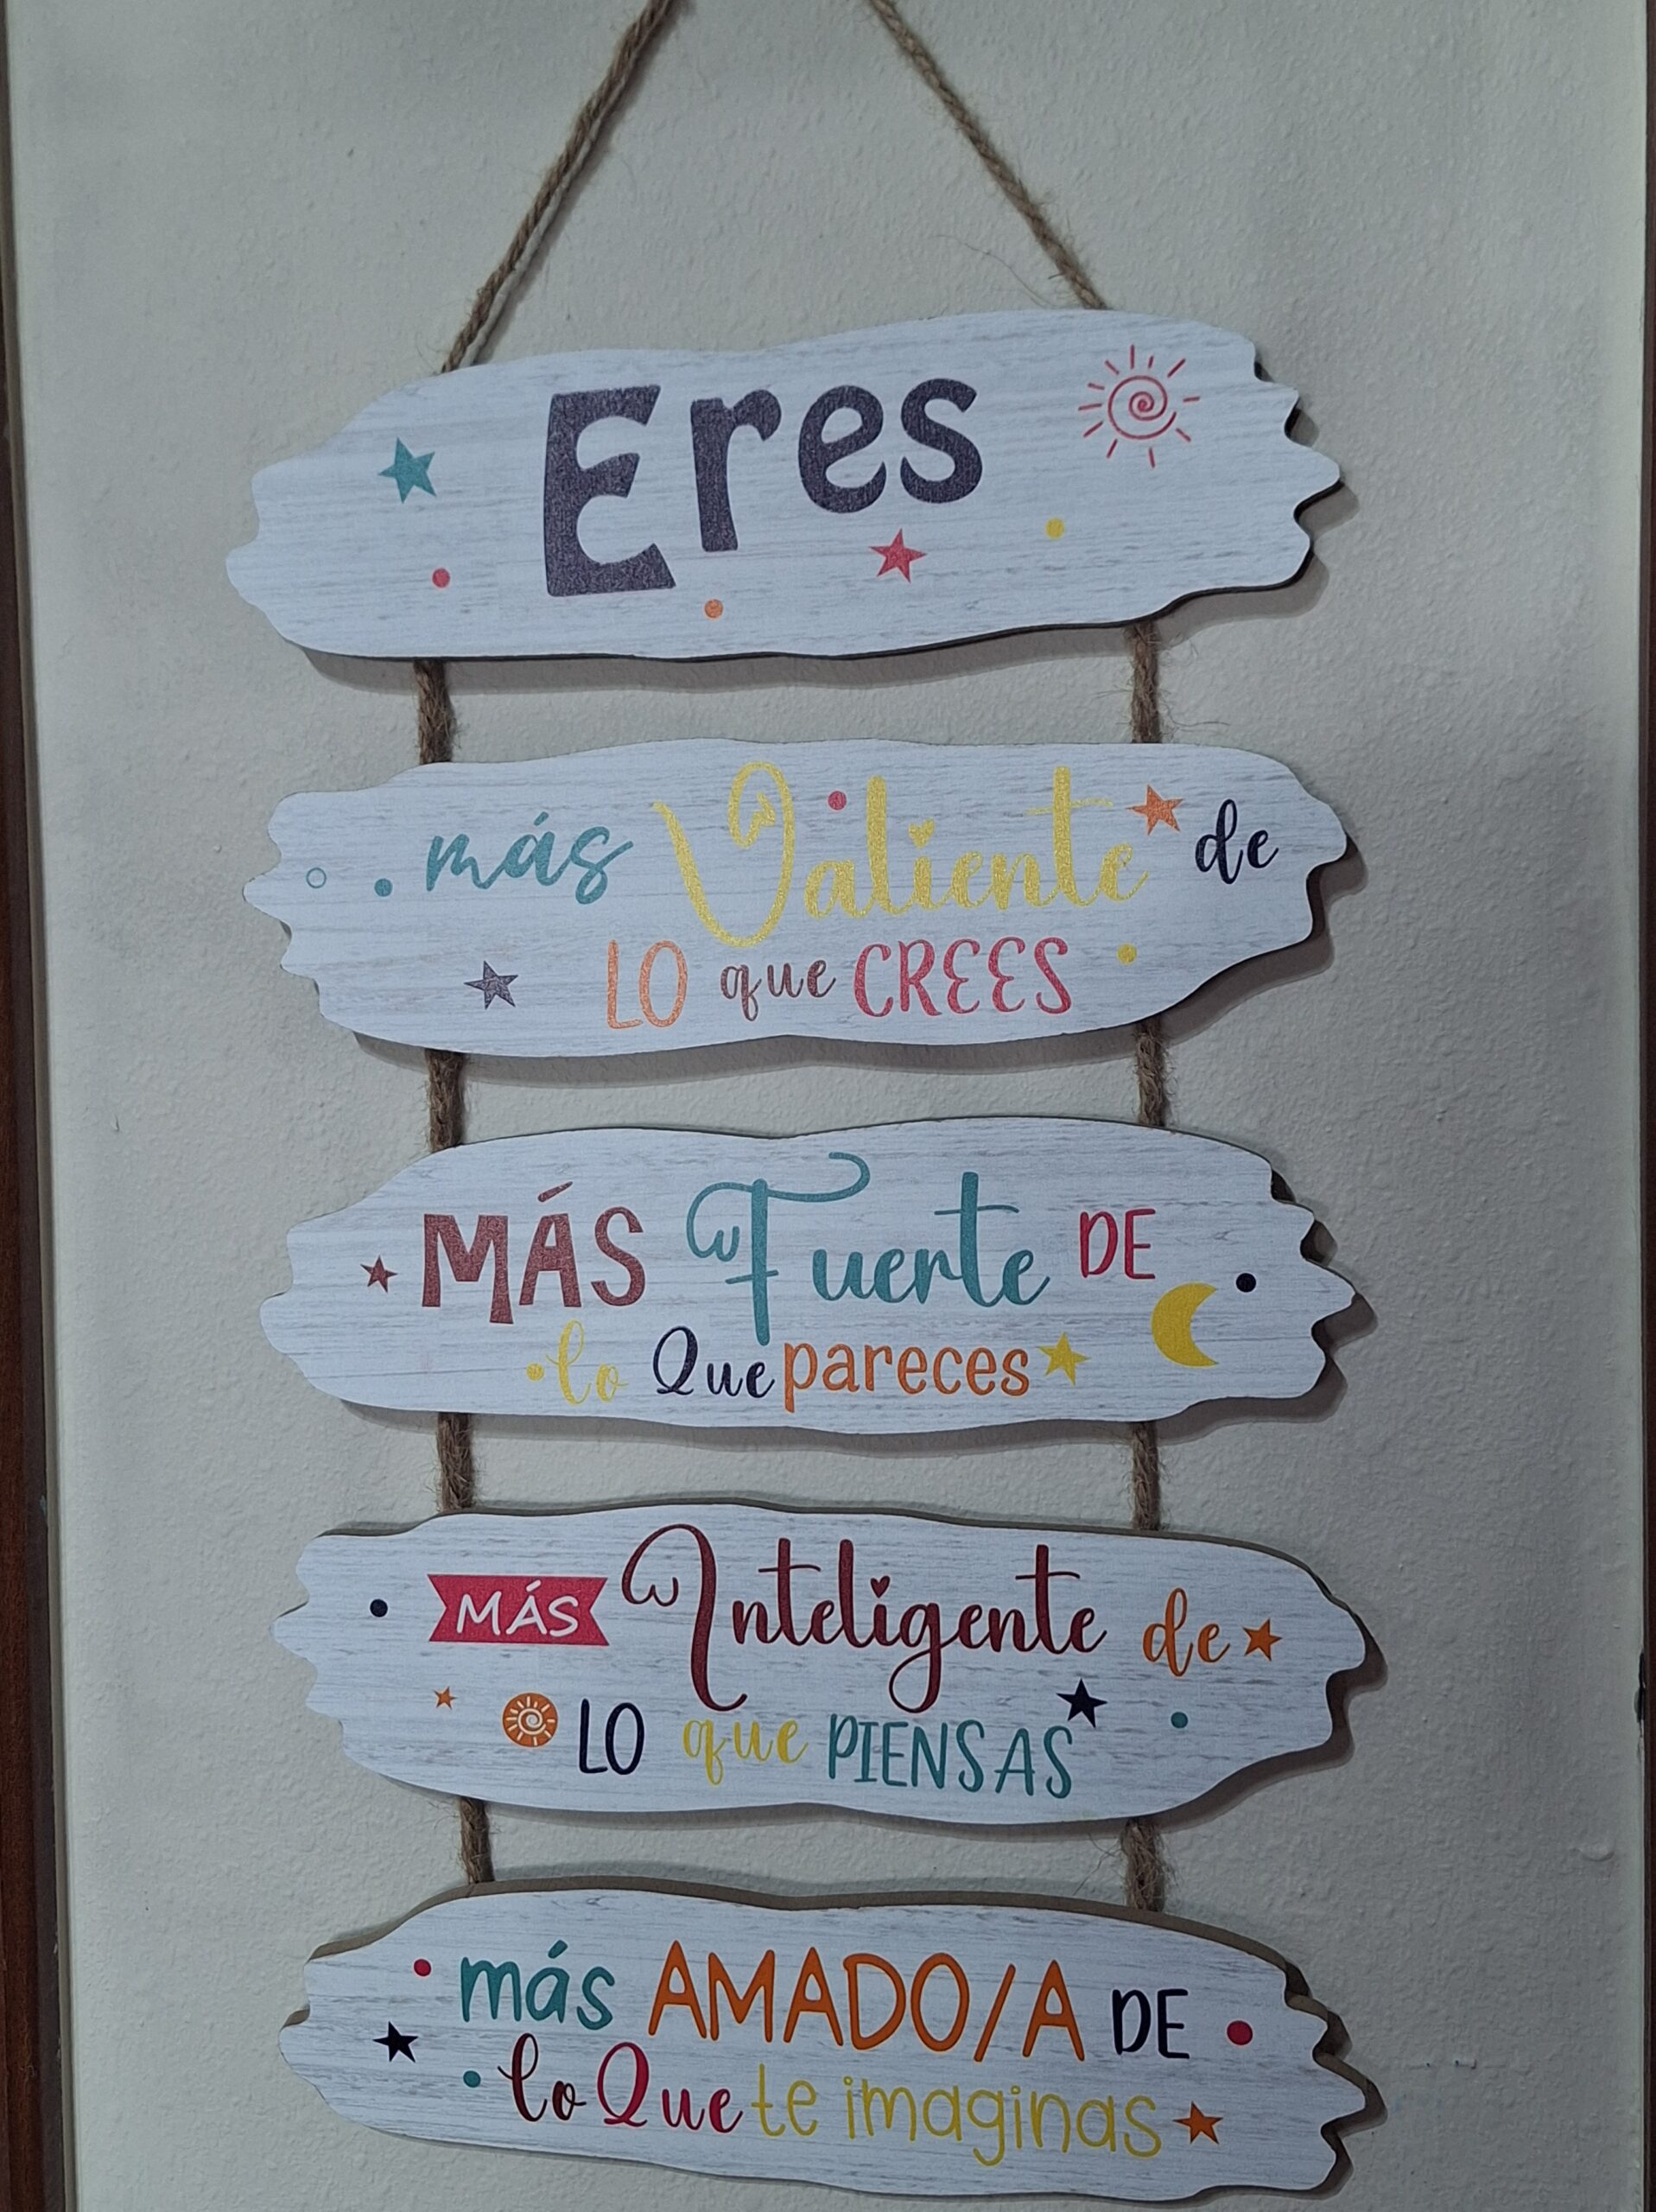 Eres
más Valiente de
LO que CREES
MÁS Fuerte DE
lo Que pareces
MÁS Inteligente de
LO que PIENSAS
más AMADO/A DE
lo Que te imaginas